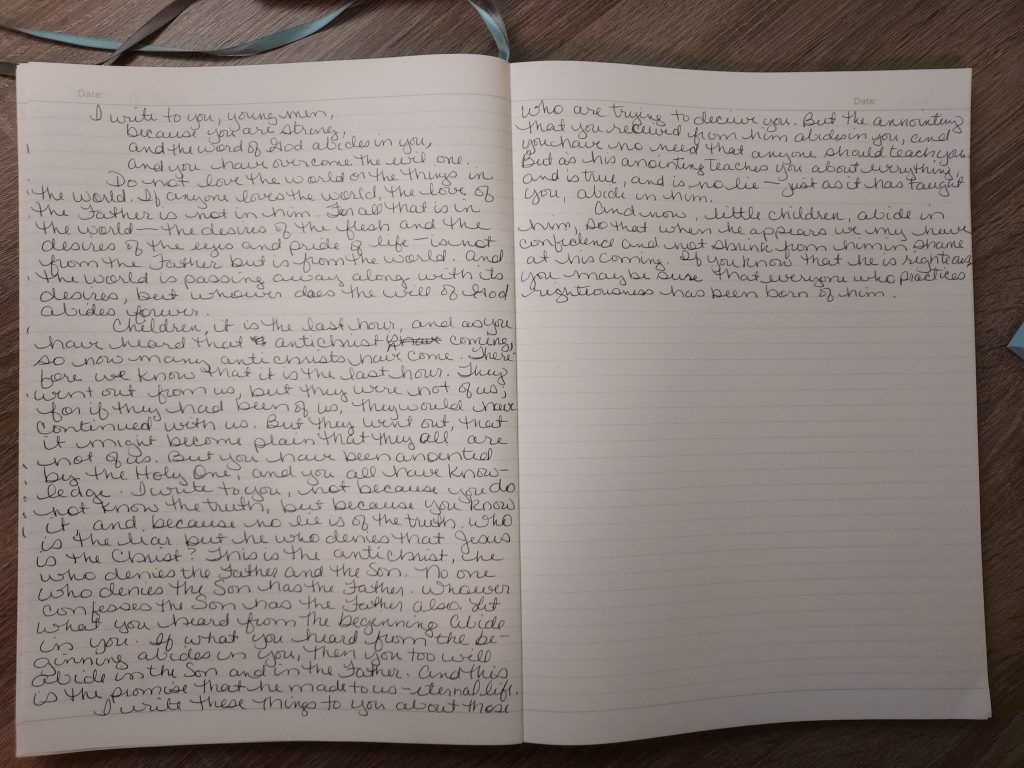 Date:
I write to you, young men,
because you are strong,
and the word of God abides in you,
and you have overcome the evil one.
Do not love the world or the things in
the world. If anyone loves the world, the love of
the Father is not in him. For all that is in
the world — the desires of the flesh and the
desires of the eyes and pride of life — is not
from the Father but is from the world. And
the world is passing away along with its
desires, but whoever does the will of God
abides forever.
Children, it is the last hour, and as you
have heard that antichrist coming,
so now many antichrists have come. There-
fore we know that it is the last hour. They
went out from us, but they were not of us;
for if they had been of us, they would have
continued with us. But they went out, that
it might become plain that they all are
not of us. But you have been anointed
by the Holy One, and you all have know-
ledge. I write to you, not because you do
not know the truth, but because you know
it, and because no lie is of the truth. Who
is the liar but he who denies that Jesus
is the Christ? This is the antichrist, he
who denies the Father and the Son. No one
who denies the Son has the Father. Whoever
confesses the Son has the Father also. Let
what you heard from the beginning abide
in you. If what you heard from the be-
ginning abides in you, then you too will
abide in the Son and in the Father. And this
is the promise that he made to us — eternal life.
I write these things to you about those
Date:
who are trying to deceive you. But the annointing
that you received from him abides in you, and
you have no need that anyone should teach you.
But as his anointing teaches you about everything,
and is true, and is no lie — just as it has taught
you, abide in him.
And now, little children, abide in
him, so that when he appears we my have
confidence and not shrink from him in shame
at his coming. If you know that he is righteous,
you may be sure that everyone who practices
righteousness has been born of him.